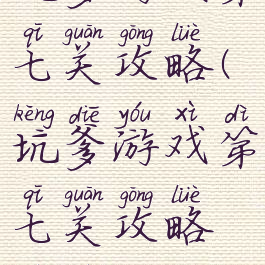 qī guān gōng lüè
七关攻略(
kēng diē yóu xì dì
坑爹游戏第
qī guān gōng lüè
七关攻略